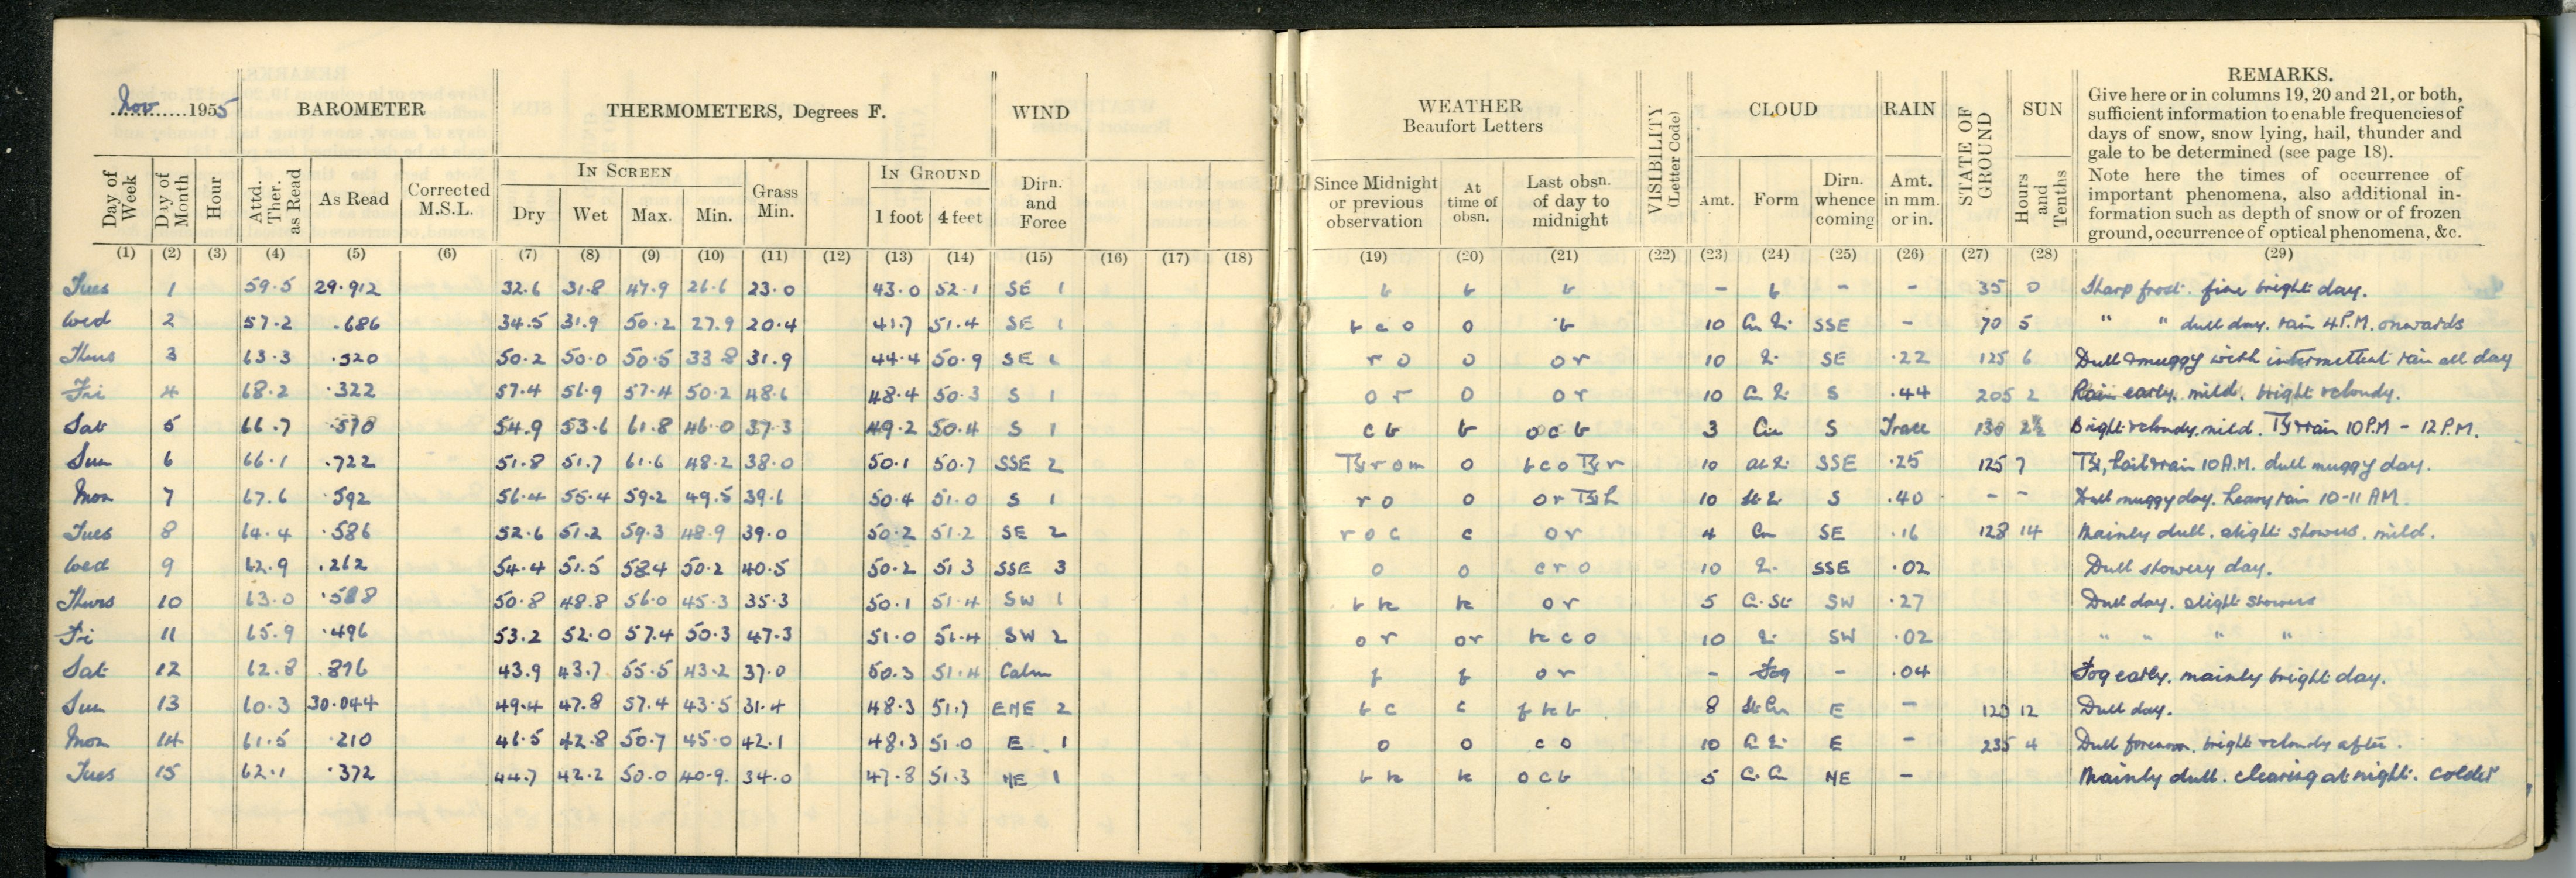 Nov. 1955 BAROMETER THERMOMETERS, Degrees F. WIND WEATHER Beaufort Letters VISIBILITY (Letter Code) CLOUD RAIN STATE OF GROUND SUN REMARKS.
Give here or in columns 19, 20 and 21, or both,
sufficient information to enable frequencies of
days of snow, snow lying, hail, thunder and
gale to be determined (see page 18).
Note here the times of occurrence of
important phenomena, also additional in-
formation such as depth of snow or of frozen
ground, occurrence of optical phenomena, &c.
Day of Week Day of Month Hour Attd. Ther. as Read As Read Corrected M.S.L. IN SCREEN Dry Wet Max. Min. Grass Min. IN GROUND 1 foot 4 feet Dirn. and Force Since Midnight or previous observation At time of obsn. Last obsn. of day to midnight Amt. Form Dirn. whence coming Amt. in mm. or in. Hours and Tenths
(1) (2) (3) (4) (5) (6) (7) (8) (9) (10) (11) (12) (13) (14) (15) (16) (17) (18) (19) (20) (21) (22) (23) (24) (25) (26) (27) (28) (29)
Tues 1 59.5 29.912 32.6 31.8 47.9 26.6 23.0 43.0 52.1 SE 1 b b b - b - - 35 0 Sharp frost. fine bright day.
Wed 2 57.2 .686 34.5 31.9 50.2 27.9 20.4 41.7 51.4 SE 1 b c o o b 10 SSE - 70 5 " " dull day. rain 4 P.M. onwards
Thurs 3 63.3 .520 50.2 50.0 50.5 33.8 31.9 44.4 50.9 SE 1 r o o o r 10 SE .22 125 6 Dull & muggy with intermettent rain all day
Fri 4 68.2 .322 57.4 56.9 57.4 50.2 48.6 48.4 50.3 S 1 o r o o r 10 S .44 205 2 Rain early. mild. bright & cloudy.
Sat 5 66.7 54.9 53.6 61.8 46.0 37.3 49.2 50.4 S 1 c b b o c b 3 Cu S Trace 2½ Bright & cloudy. mild. rain 10 P.M - 12 P.M.
Sun 6 66.1 .722 51.8 51.7 61.6 48.2 38.0 50.1 50.7 SSE 2 o 10 SSE .25 125 7 hail & rain 10 A.M. dull muggy day.
Mon 7 67.6 .592 56.4 55.4 59.2 49.5 39.6 50.4 51.0 S 1 r o o o r 10 S .40 - - Dull muggy day. heavy rain 10-11 AM
Tues 8 64.4 .586 52.6 51.2 59.3 48.9 39.0 50.2 51.2 SE 2 r o c c o r 4 Cu SE .16 128 14 Mainly dull. slight showers. mild.
Wed 9 62.9 .262 54.4 51.5 58.4 50.2 40.5 50.2 51.3 SSE 3 o o c r o 10 SSE .02 Dull showery day.
Thurs 10 63.0 50.8 48.8 56.0 45.3 35.3 50.1 51.4 SW 1 b bc bc o r 5 SW .27 Dull day. slight showers
Fri 11 65.9 .496 53.2 52.0 57.4 50.3 47.3 51.0 51.4 SW 2 o r or bc c o 10 SW .02 " " " "
Sat 12 62.8 .876 43.9 43.7 55.5 43.2 37.0 50.3 51.4 Calm f f o r - Fog - .04 Fog early. mainly bright day.
Sun 13 60.3 30.044 49.4 47.8 57.4 43.5 31.4 48.3 51.7 ENE 2 b c c f bc b 8 St Cu E - 120 12 Dull day.
Mon 14 61.5 .210 46.5 42.8 50.7 45.0 42.1 48.3 51.0 E 1 o o c o 10 E - 235 4 Dull forenoon. bright & cloudy after.
Tues 15 62.1 .372 44.7 42.2 50.0 40.9 34.0 47.8 51.3 NE 1 b bc bc o c b 5 NE - Mainly dull. clearing at night. colder